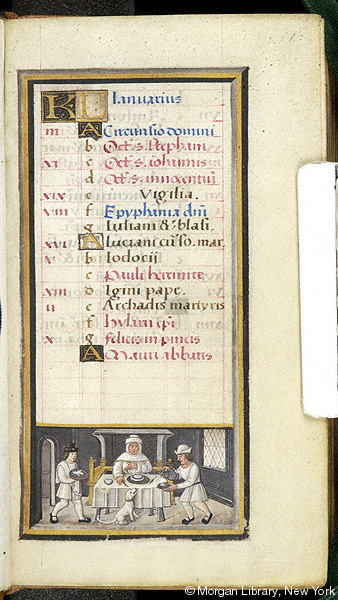 KL Ianuarius
iii A Circuncisio domini
b Oct. s. stephani
xi c Oct. s. iohannis
d Oct. s. innocentiū
xix e Vigilia.
viii f Epyphania dnī
g Iuliani & blasi.
xvi A Luciani cū so. mar.
v b Iodocii
c Pauli heremite
xiii d Igini pape.
ii e Archadis martyris
f hylarii epī
x g felicis in pincis
A Mauri abbatis
© Morgan Library, New York